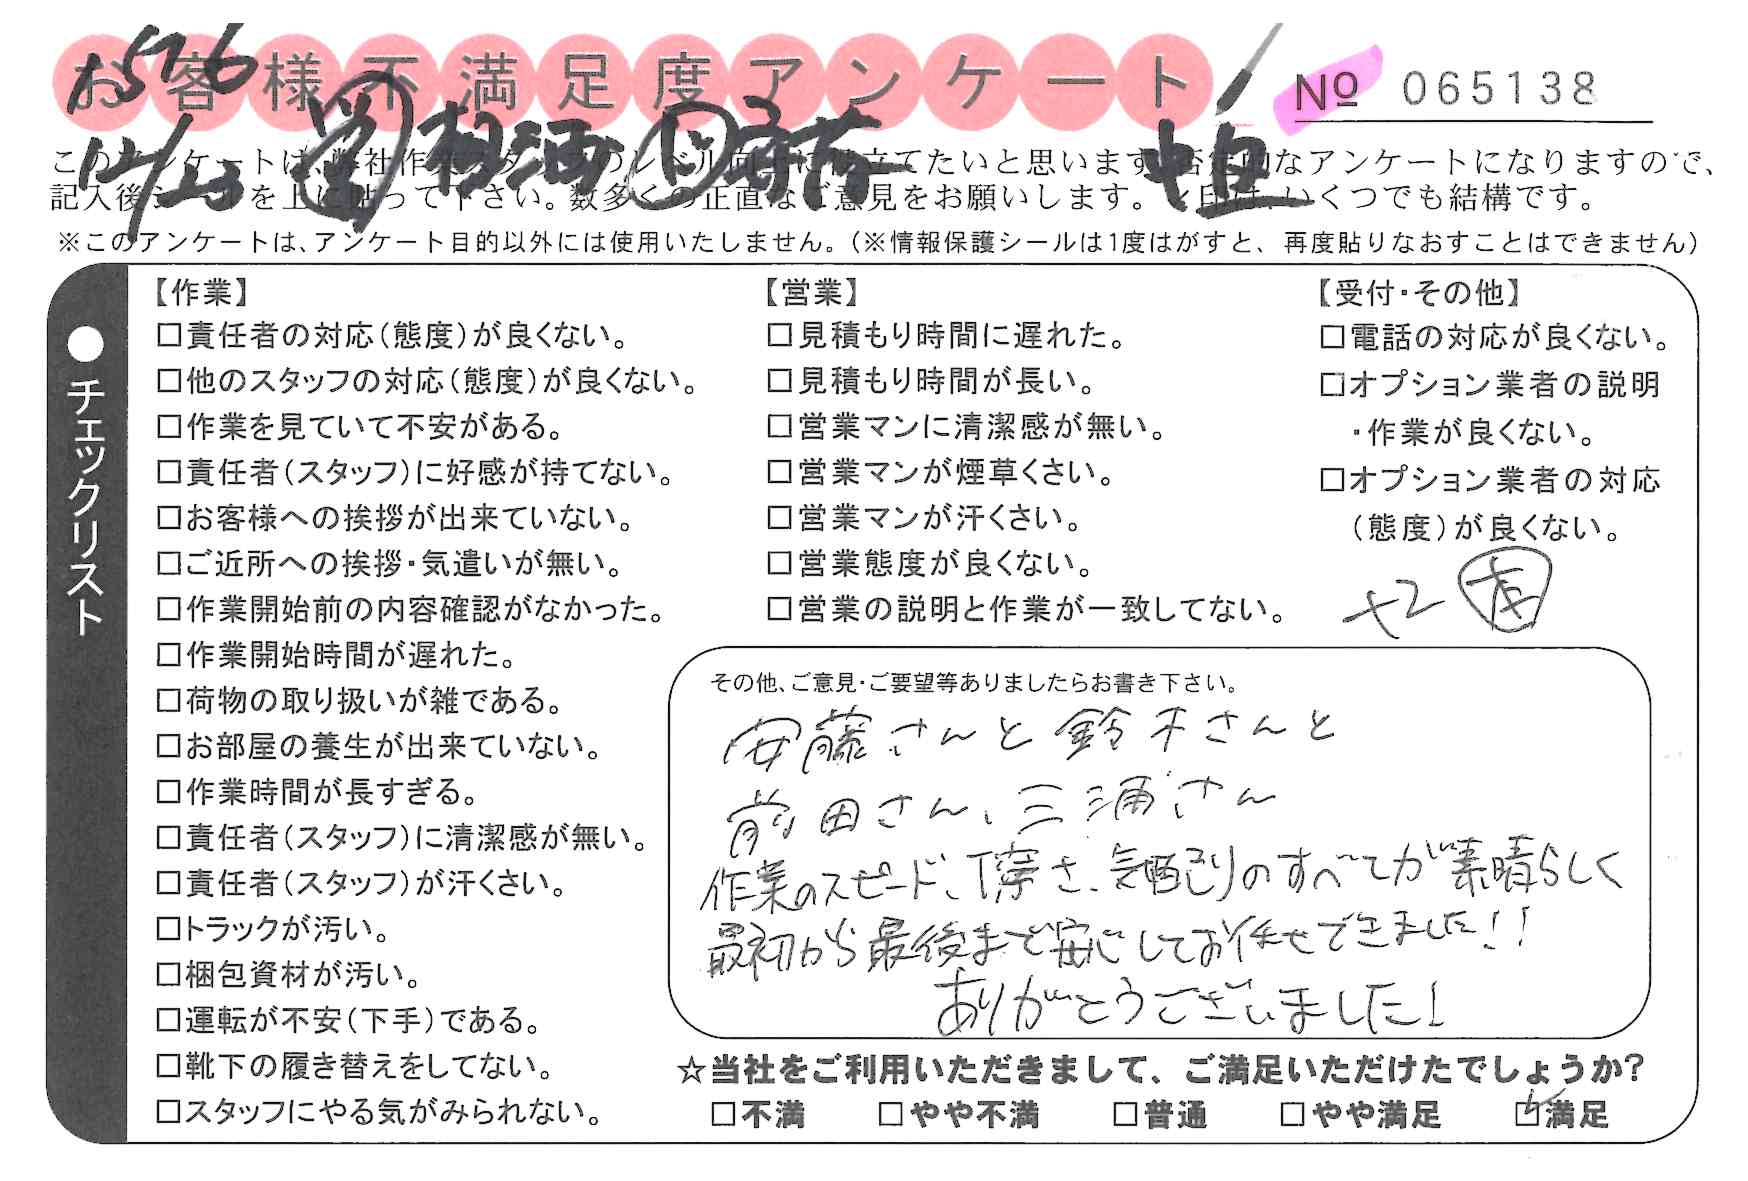 お客様不満足度アンケート
1576
№ 065138
このアンケートは、弊社作業スタッフのレベル向上に役立てたいと思います。否定的なアンケートになりますので、
記入後シールを上に貼って下さい。数多くの正直なご意見をお願いします。✓印は、いくつでも結構です。
※このアンケートは、アンケート目的以外には使用いたしません。(※情報保護シールは1度はがすと、再度貼りなおすことはできません)
●チェックリスト
【作業】
□責任者の対応(態度)が良くない。
□他のスタッフの対応(態度)が良くない。
□作業を見ていて不安がある。
□責任者(スタッフ)に好感が持てない。
□お客様への挨拶が出来ていない。
□ご近所への挨拶・気遣いが無い。
□作業開始前の内容確認がなかった。
□作業開始時間が遅れた。
□荷物の取り扱いが雑である。
□お部屋の養生が出来ていない。
□作業時間が長すぎる。
□責任者(スタッフ)に清潔感が無い。
□責任者(スタッフ)が汗くさい。
□トラックが汚い。
□梱包資材が汚い。
□運転が不安(下手)である。
□靴下の履き替えをしてない。
□スタッフにやる気がみられない。
【営業】
□見積もり時間に遅れた。
□見積もり時間が長い。
□営業マンに清潔感が無い。
□営業マンが煙草くさい。
□営業マンが汗くさい。
□営業態度が良くない。
□営業の説明と作業が一致してない。
【受付・その他】
□電話の対応が良くない。
□オプション業者の説明
・作業が良くない。
□オプション業者の対応
(態度)が良くない。
+2
その他、ご意見・ご要望等ありましたらお書き下さい。
安藤さんと鈴木さんと
前田さん、三浦さん
作業のスピード、丁寧さ、気配りのすべてが素晴らしく
最初から最後まで安心してお任せできました!!
ありがとうございました!
☆当社をご利用いただきまして、ご満足いただけたでしょうか?
□不満 □やや不満 □普通 □やや満足 ☑満足